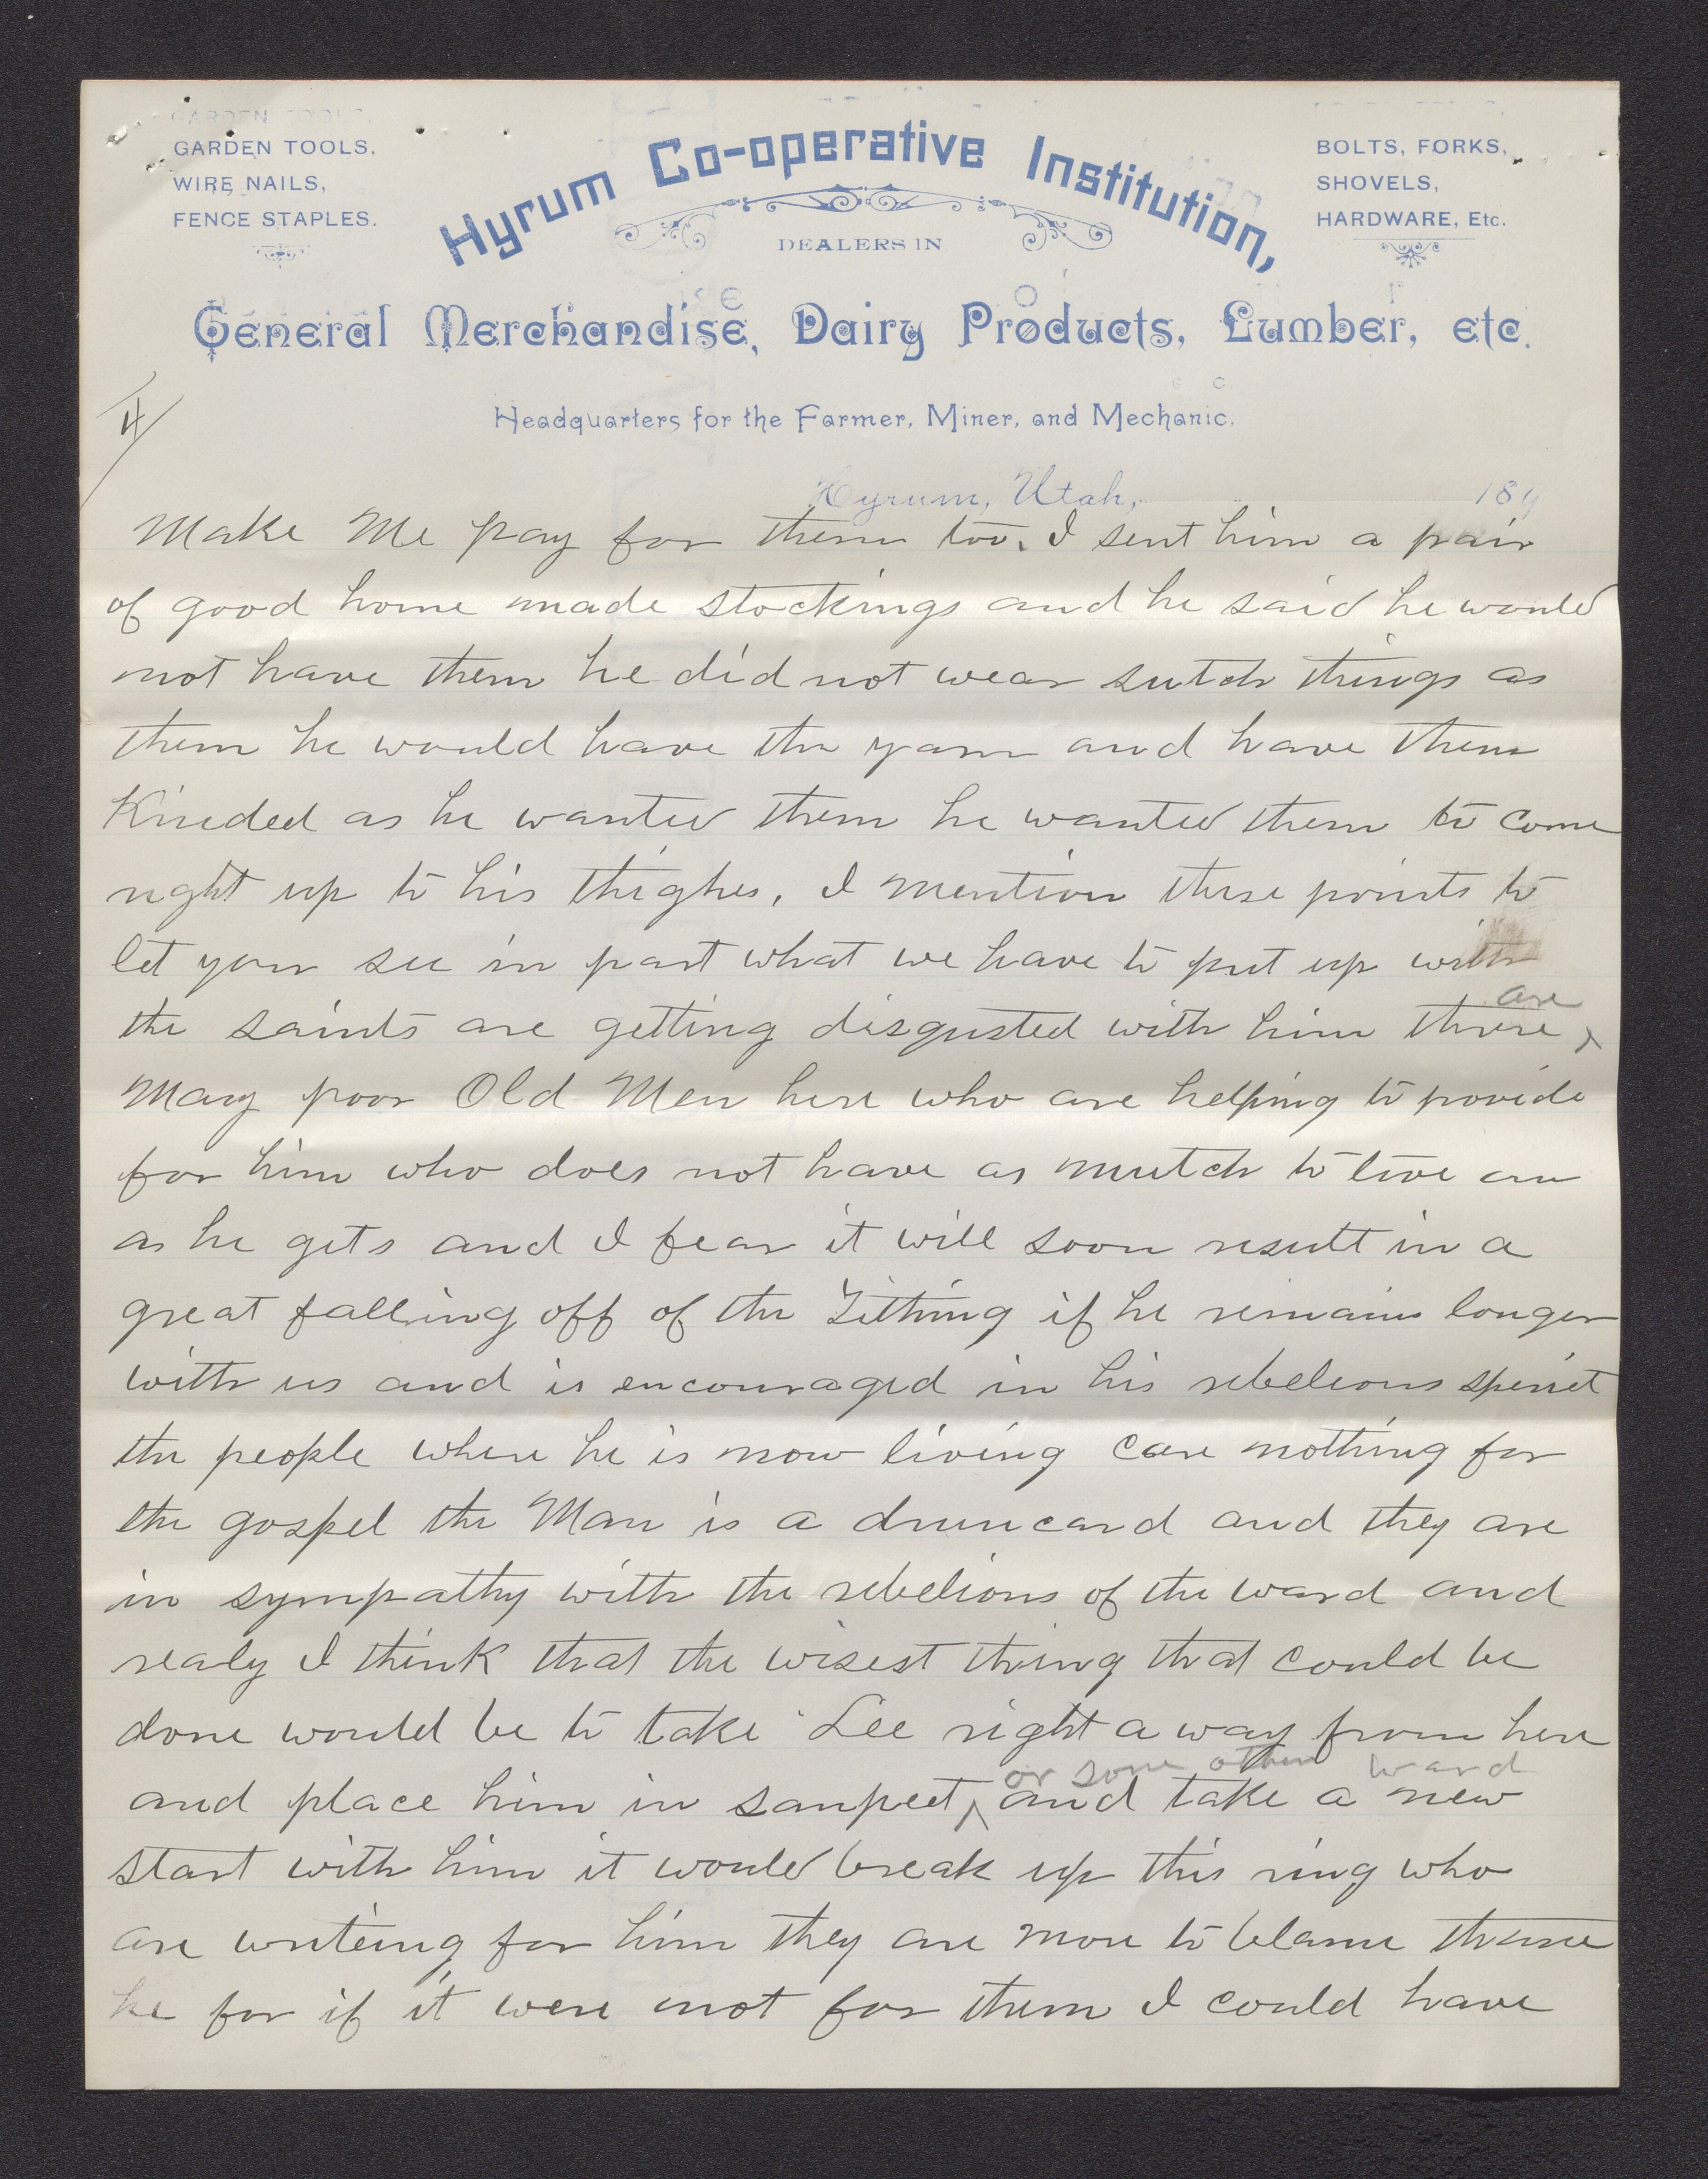 GARDEN TOOLS,
WIRE NAILS,
FENCE STAPLES.
Hyrum Co-operative Institution,
DEALERS IN
BOLTS, FORKS,
SHOVELS,
HARDWARE, Etc.
General Merchandise, Dairy Products, Lumber, etc.
4/
Headquarters for the Farmer, Miner, and Mechanic.
Hyrum, Utah, 189
Make Me pay for them too. I sent him a pair
of good home made stockings and he said he would
not have them he did not wear sutch things as
them he would have the yarn and have them
Knided as he wanted them he wanted them to come
right up to his thighes, I mention these points to
let you see in part what we have to put up with
the saints are getting disgusted with him there ^are
Many poor Old Men here who are helping to provide
for him who does not have as mutch to live on
as he gets and I fear it will soon result in a
great falling off of the Tithing if he remains longer
with us and is encouraged in his rebelious spirit
the people where he is now living care nothing for
the gospel the Man is a druncard and they are
in sympathy with the rebelions of the ward and
realy I think that the wisest thing that could be
done would be to take Lee right a way from here
or some other ward
and place him in sanpeet, ^ and take a new
start with him it would break up this ring who
are writeing for him they are more to blame thane
he for if it were not for them I could have